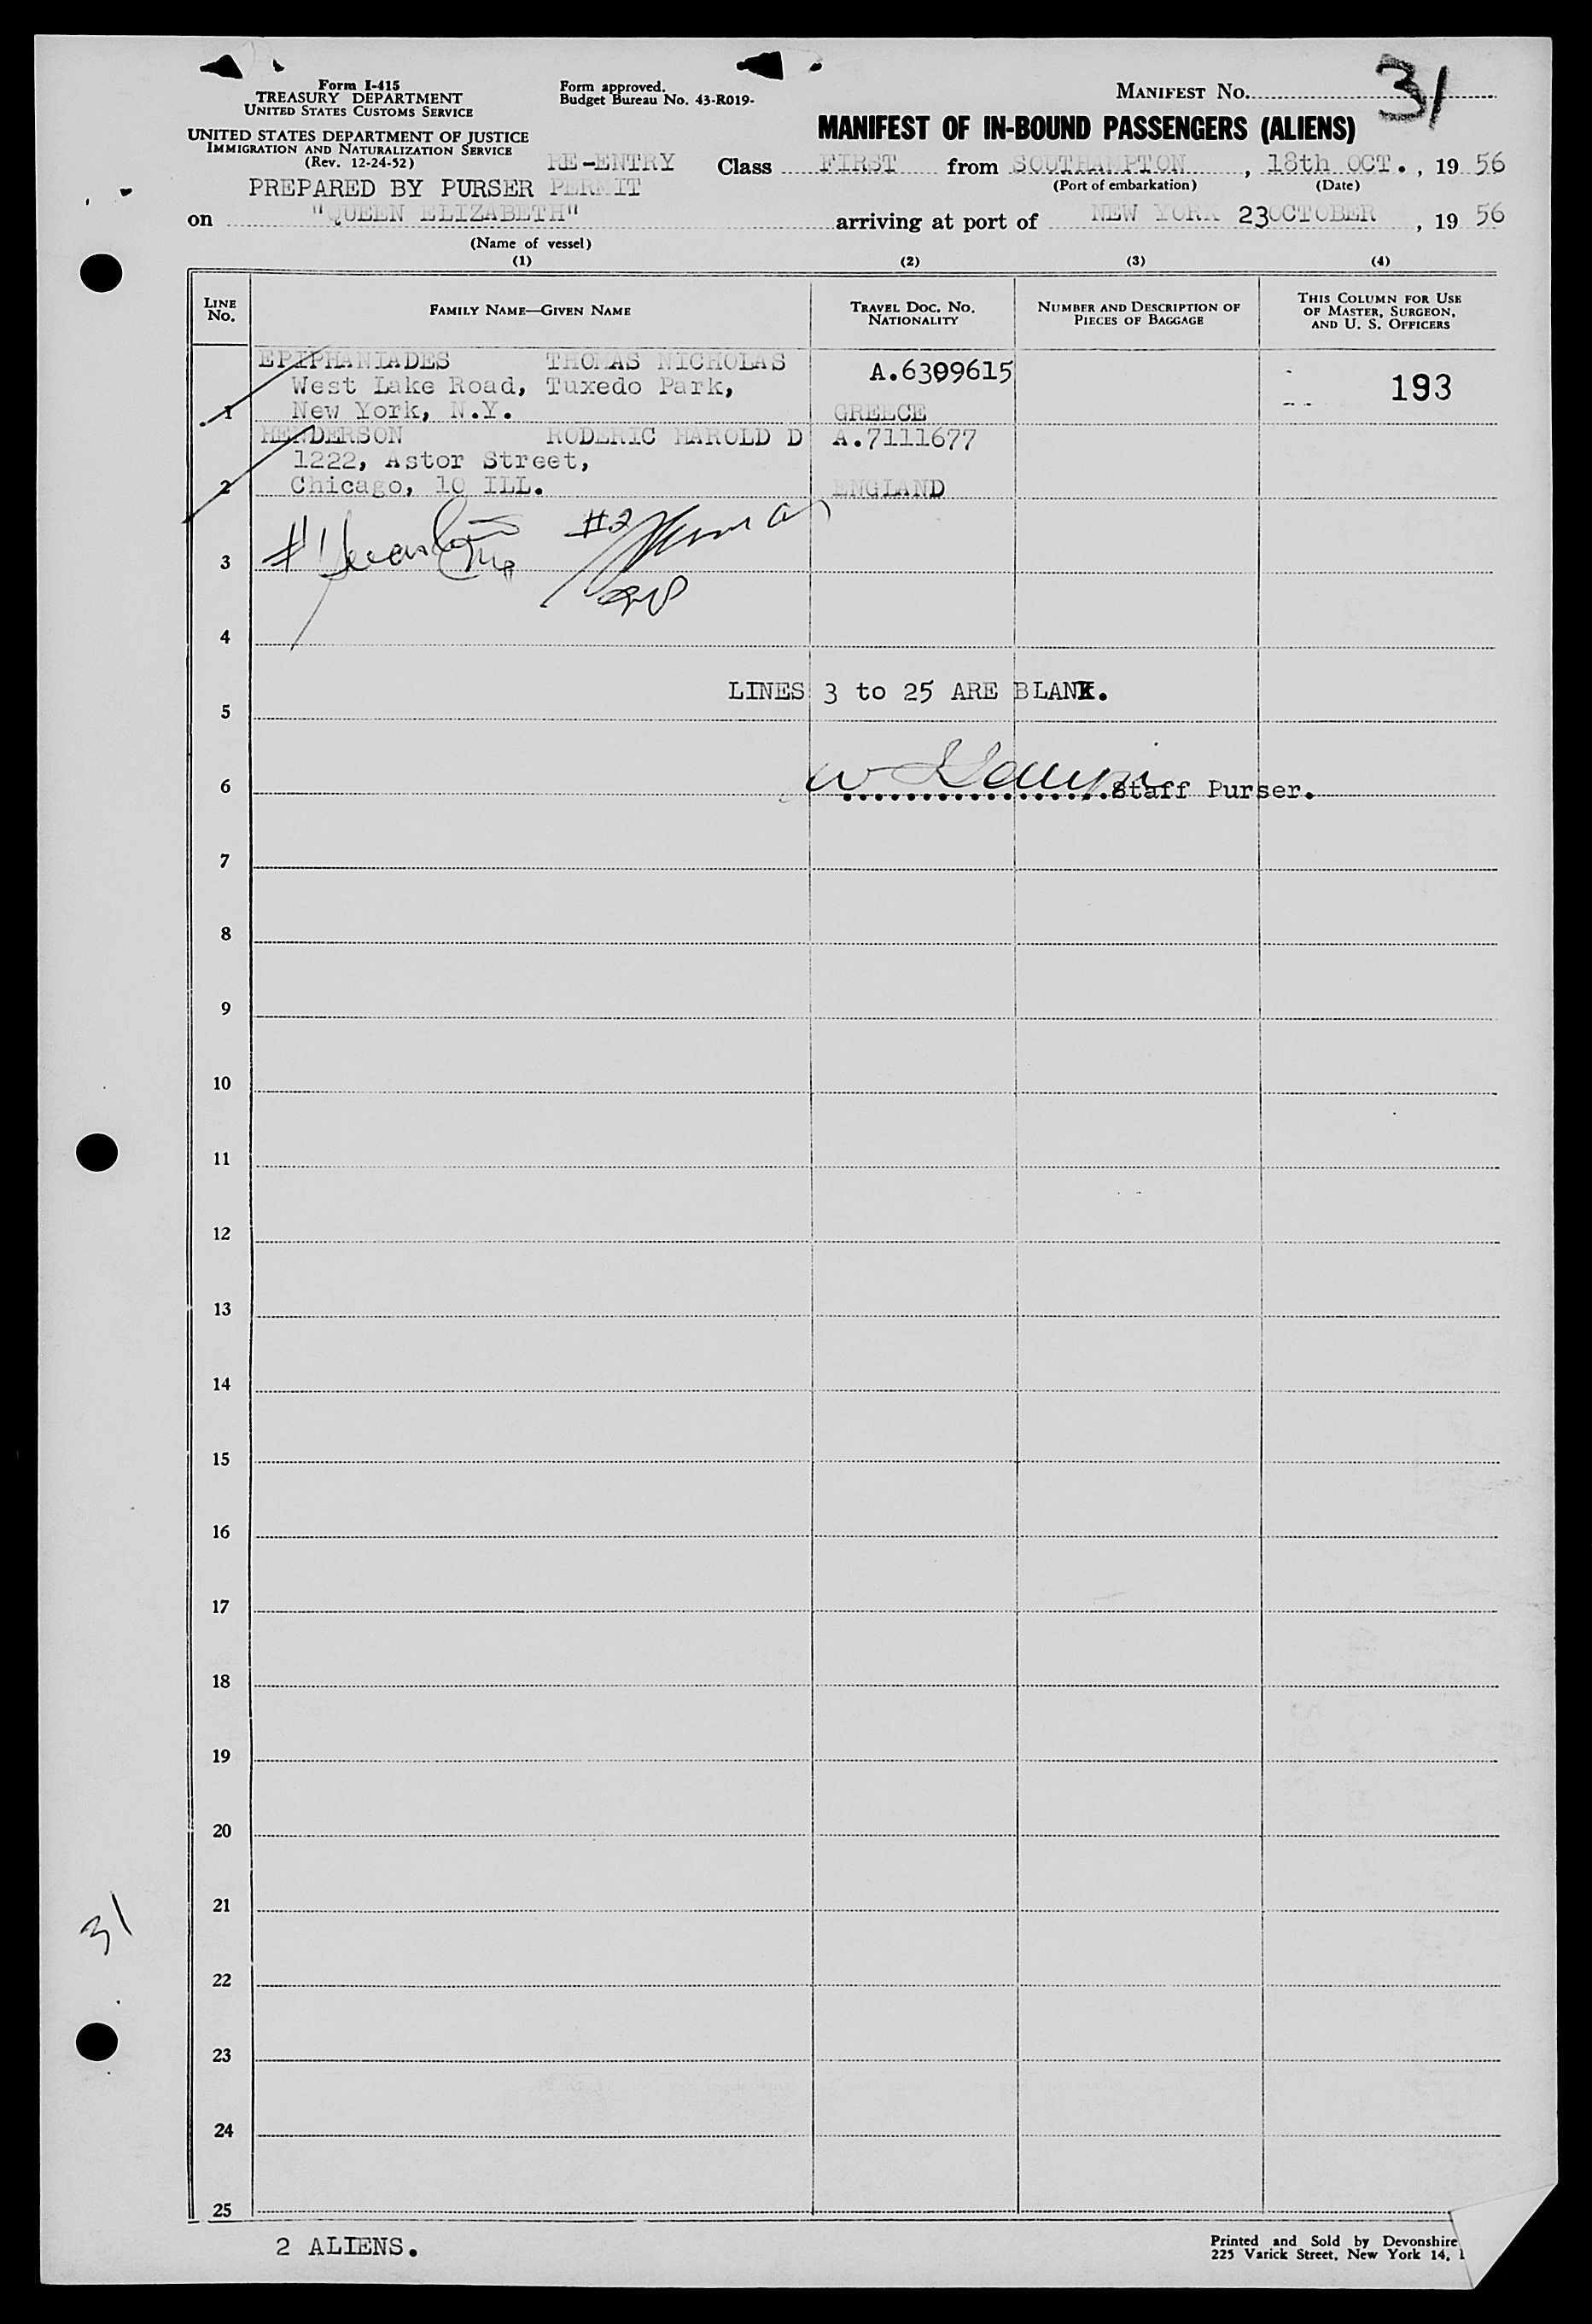 Form I-415
TREASURY DEPARTMENT
UNITED STATES CUSTOMS SERVICE
UNITED STATES DEPARTMENT OF JUSTICE
IMMIGRATION AND NATURALIZATION SERVICE
(Rev. 12-24-52)
Form approved.
Budget Bureau No. 43-R019-
MANIFEST NO. 31
MANIFEST OF IN-BOUND PASSENGERS (ALIENS)
PREPARED BY PURSER RE-ENTRY PERMIT
Class FIRST from SOUTHAMPTON, 18th OCT., 19 56
(Port of embarkation) (Date)
on "QUEEN ELIZABETH" arriving at port of NEW YORK 23 OCTOBER, 19 56
(Name of vessel)
(1) (2) (3) (4)
LINE NO.
FAMILY NAME—GIVEN NAME
TRAVEL DOC. NO. NATIONALITY
NUMBER AND DESCRIPTION OF PIECES OF BAGGAGE
THIS COLUMN FOR USE OF MASTER, SURGEON, AND U. S. OFFICERS
EPIPHANIADES THOMAS NICHOLAS A.6309615 193
West Lake Road, Tuxedo Park,
1 New York, N.Y. GREECE
HENDERSON RODERIC HAROLD D A.7111677
1222, Astor Street,
2 Chicago, 10 ILL. ENGLAND
#1 #2
3
4
LINES 3 to 25 ARE BLANK.
5
6 Staff Purser.
7
8
9
10
11
12
13
14
15
16
17
18
19
20
21
31
22
23
24
25
2 ALIENS.
Printed and Sold by Devonshire
225 Varick Street, New York 14,